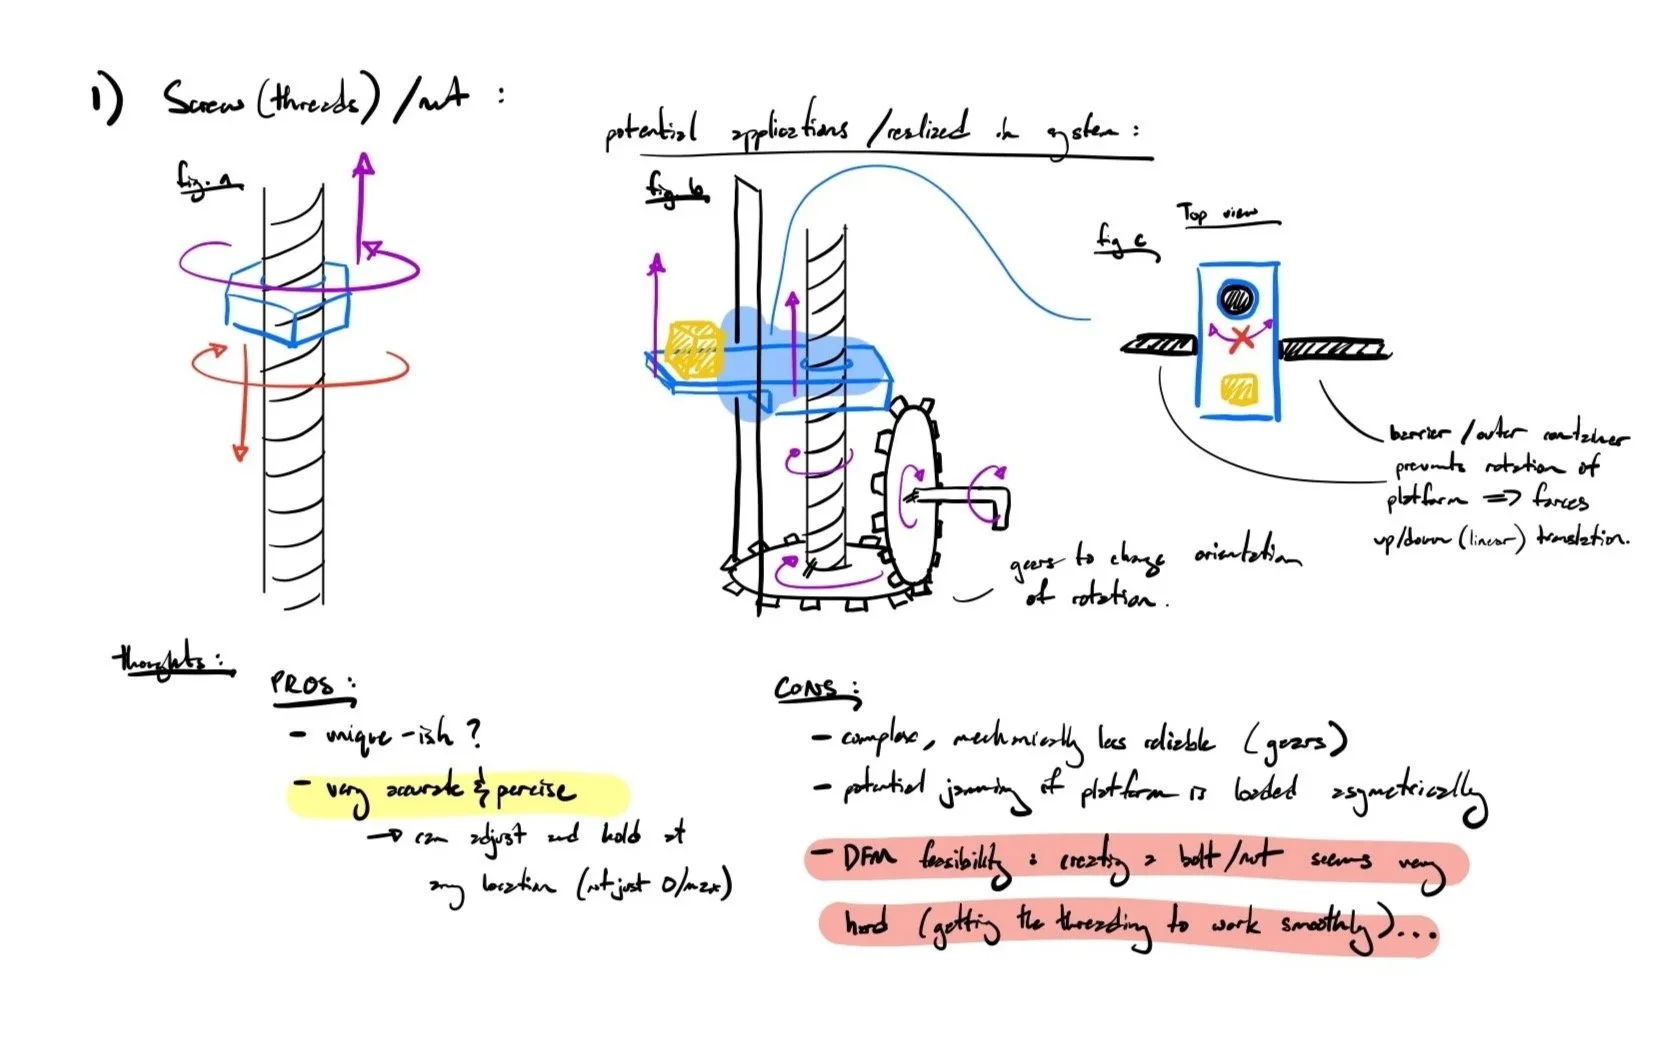 1) Screw (threads) / nut :
potential applications / realized in system :
fig. a
fig. b
Top view
fig c
barrier / outer container
prevents rotation of
platform => forces
up/down (linear) translation.
gears to change orientation
of rotation.
thoughts :
PROS :
- unique-ish ?
- very accurate & percise
→ can adjust and hold at
any location (not just 0/max)
CONS :
- complex, mechanically less reliable (gears)
- potential jamming if platform is loaded asymetrically
- DFM feasibility : creating a bolt/nut seems very
hard (getting the threading to work smoothly)...